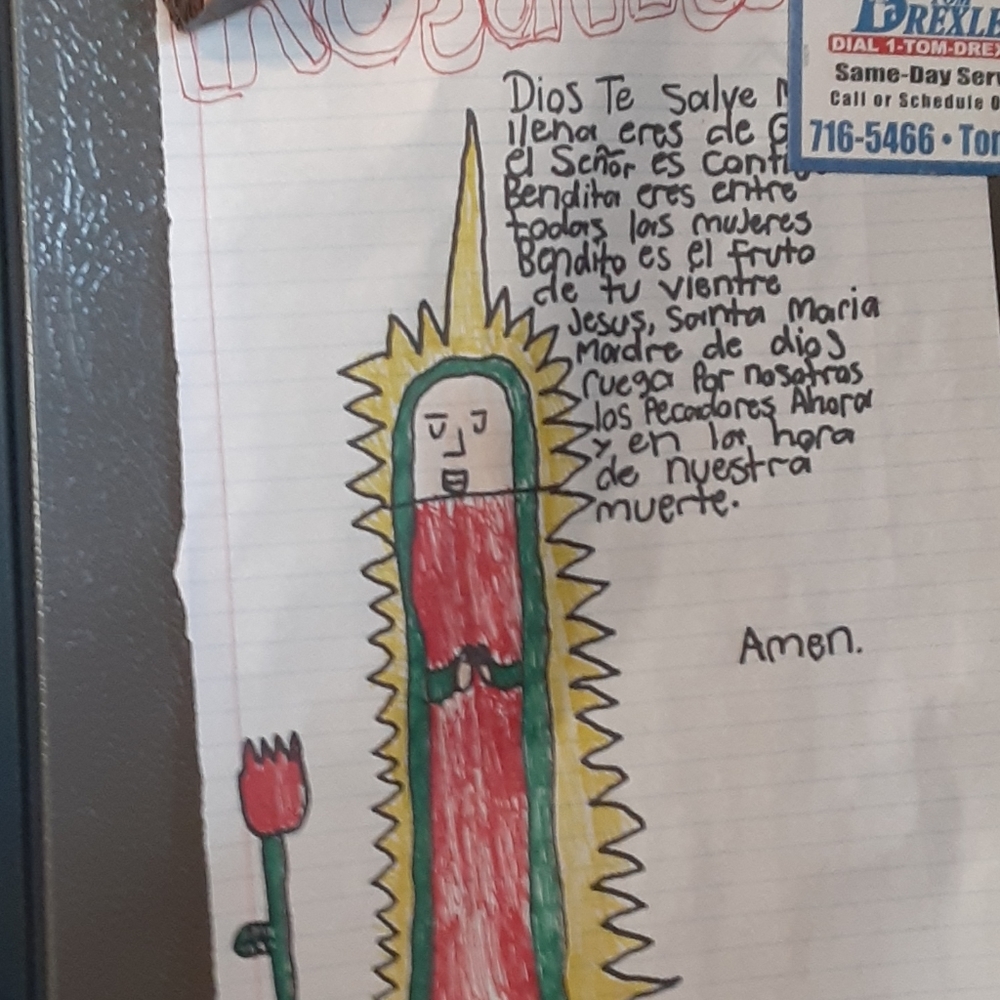 TOM
DREXLE
DIAL 1-TOM-DREX
Same-Day Serv
Call or Schedule O
716-5466 • Tom
Dios Te salve
llena eres de G
el Señor es Conti
Bendita eres entre
todas las mujeres
Bendito es el fruto
de tu vientre
Jesus, Santa Maria
Madre de dios
ruega Por nosotros
los Pecadores Ahora
y en la hora
de nuestra
muerte.
Amen.